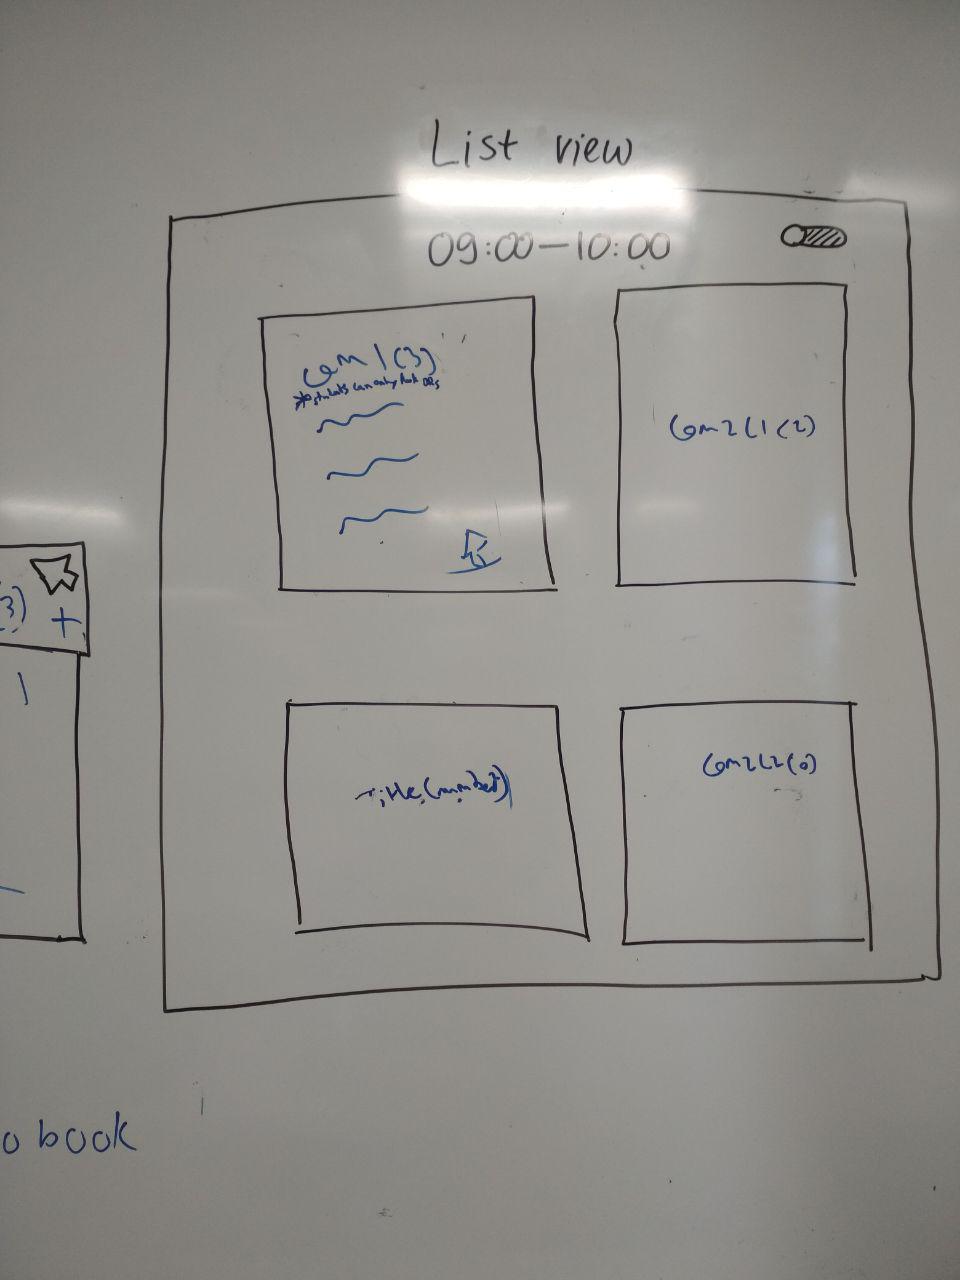 List view
09:00-10:00
Com1(3)
*students can only book DRs
Com2L1(2)
3)
+
1
Title(number)
Com2L2(0)
o book